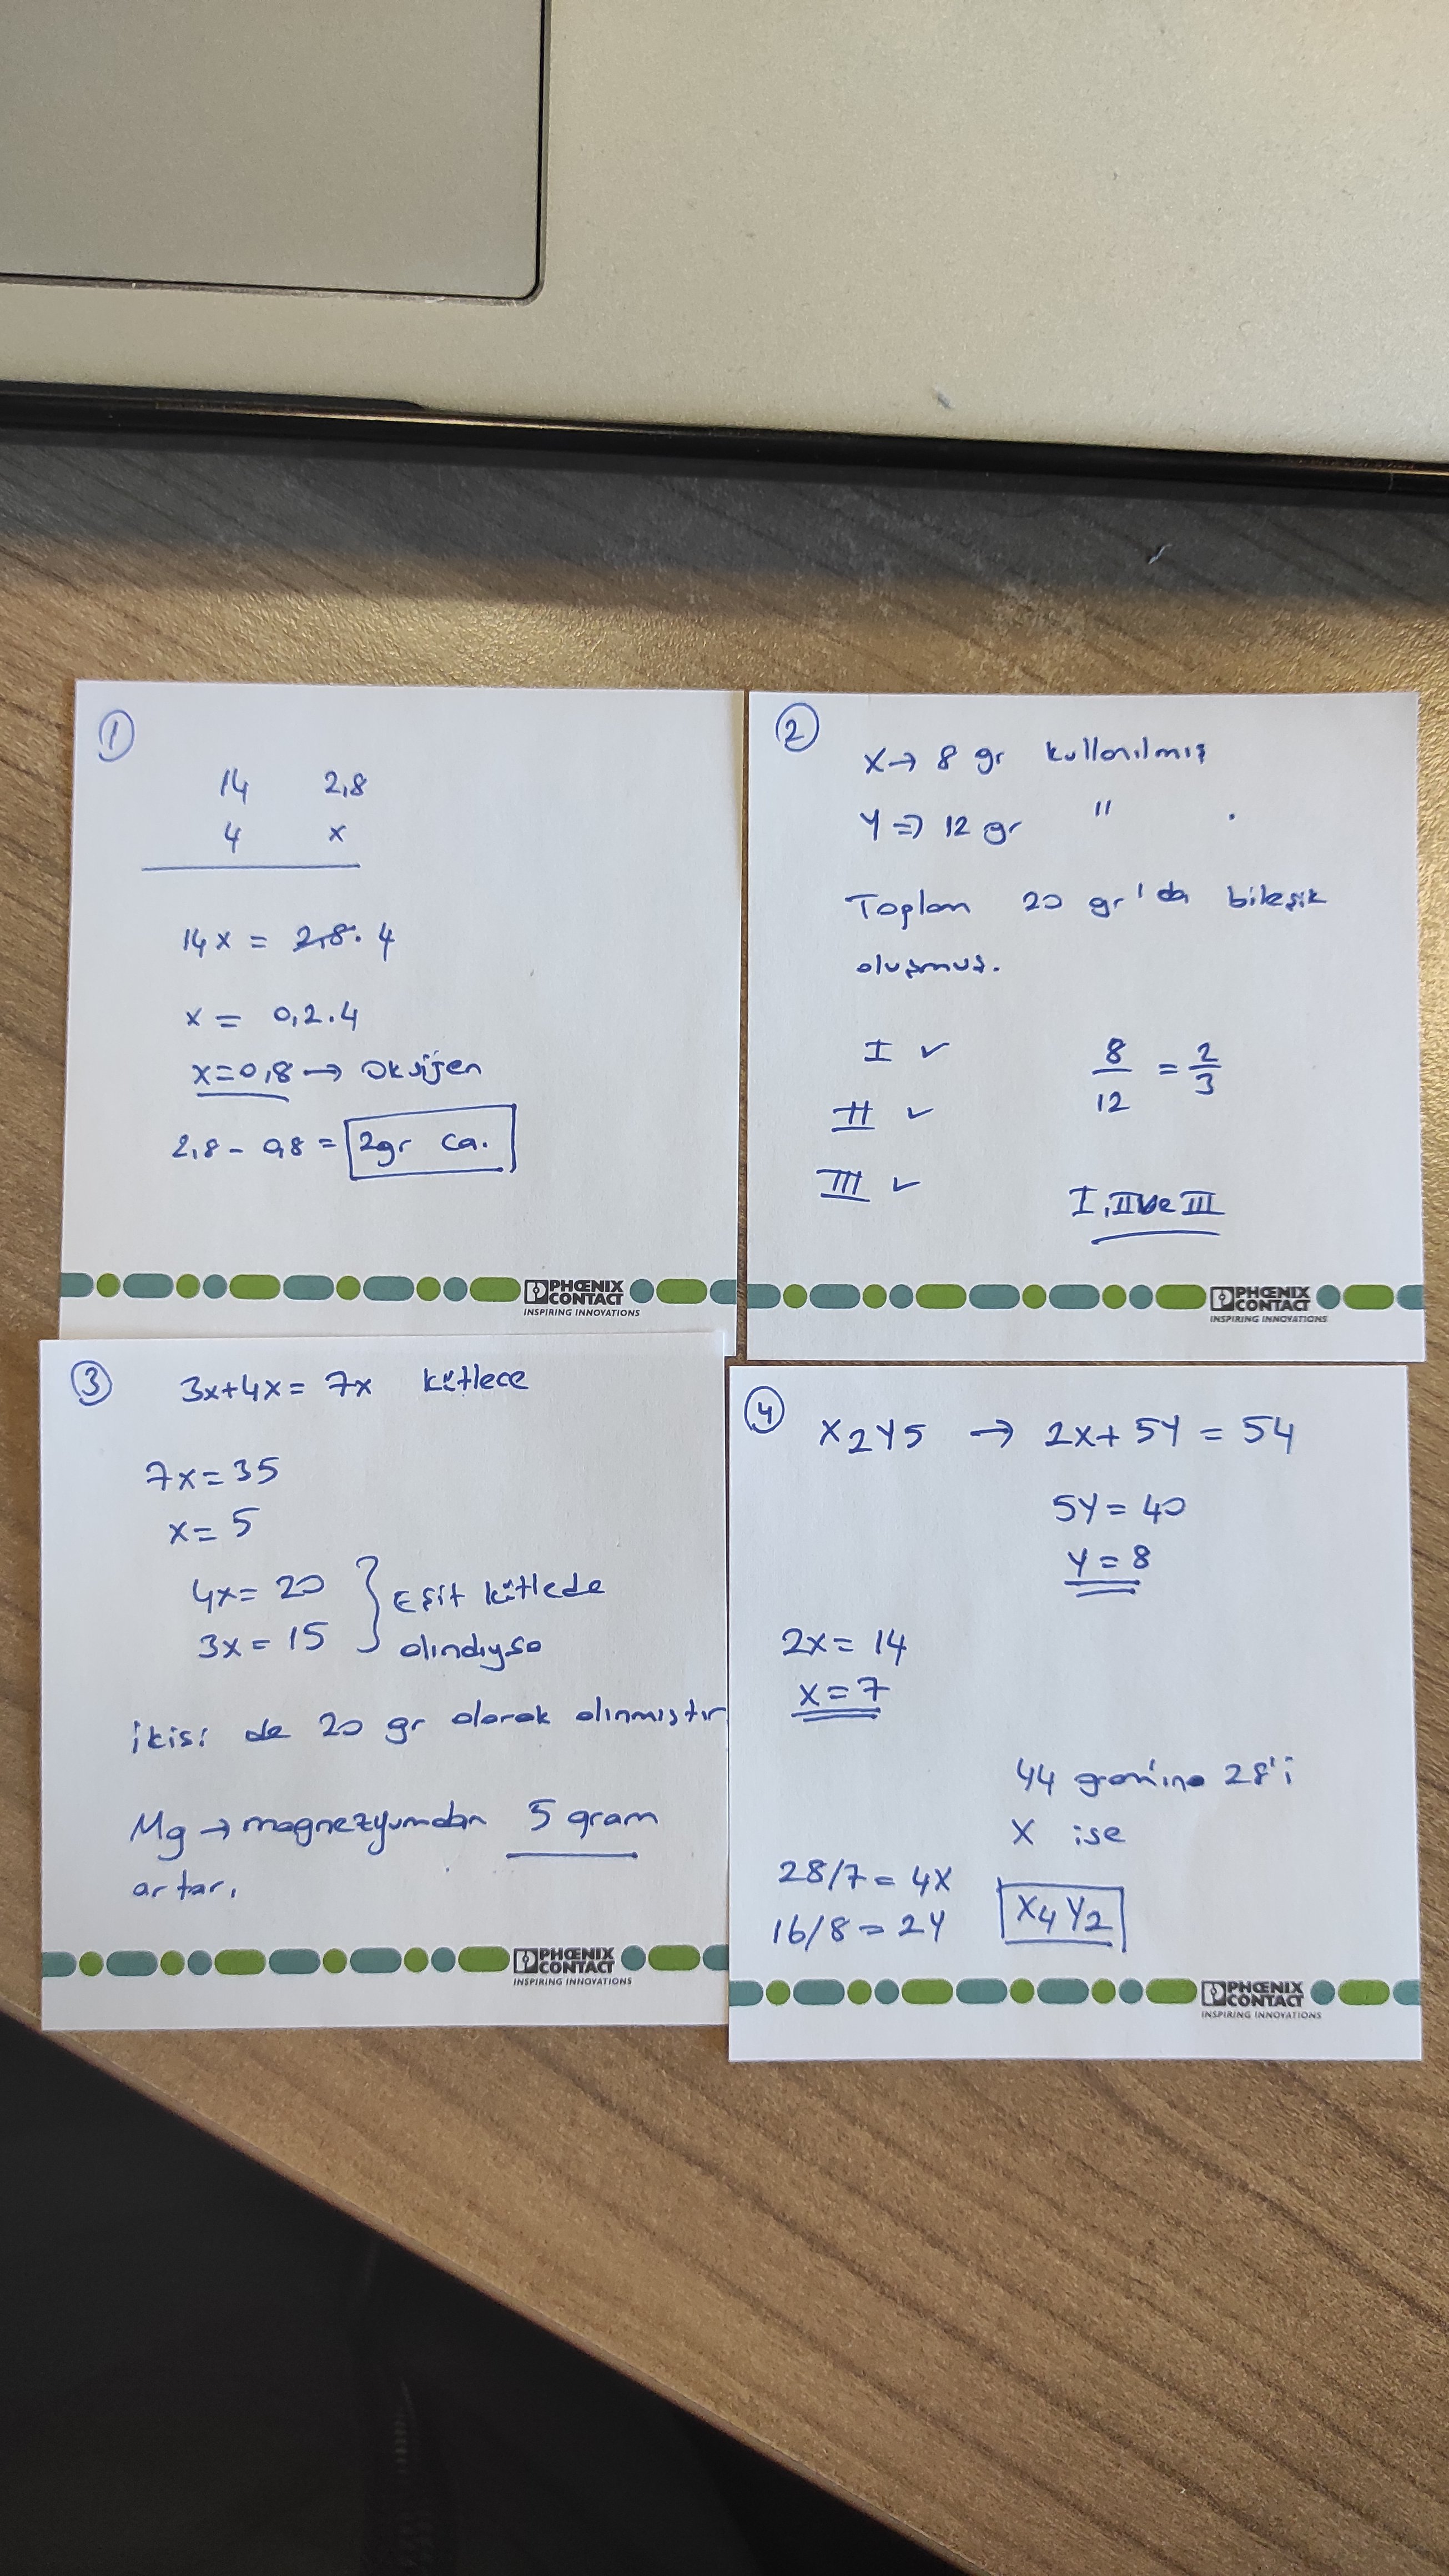 1
14 2,8
4 x
14x = 2,8.4
x = 0,2.4
x=0,8 → Oksijen
2,8 - 0,8 = 2gr Ca.
PHŒNIX
CONTACT
INSPIRING INNOVATIONS
2
X → 8 gr kullanılmış
Y ⇒ 12 gr " .
Toplam 20 gr'da bileşik
oluşmuş.
I ✓
II ✓
III ✓
8/12 = 2/3
I, II ve III
PHŒNIX
CONTACT
INSPIRING INNOVATIONS
3
3x+4x = 7x kütlece
7x = 35
x = 5
4x = 20 } Eşit kütlede
3x = 15 alındıysa
ikisi de 20 gr olarak alınmıştır
Mg → magnezyumdan 5 gram
artar.
PHŒNIX
CONTACT
INSPIRING INNOVATIONS
4
X2Y5 → 2x + 5Y = 54
5Y = 40
Y = 8
2x = 14
x = 7
44 gram'ına 28'i
X ise
28/7 = 4X
16/8 = 2Y
X4Y2
PHŒNIX
CONTACT
INSPIRING INNOVATIONS